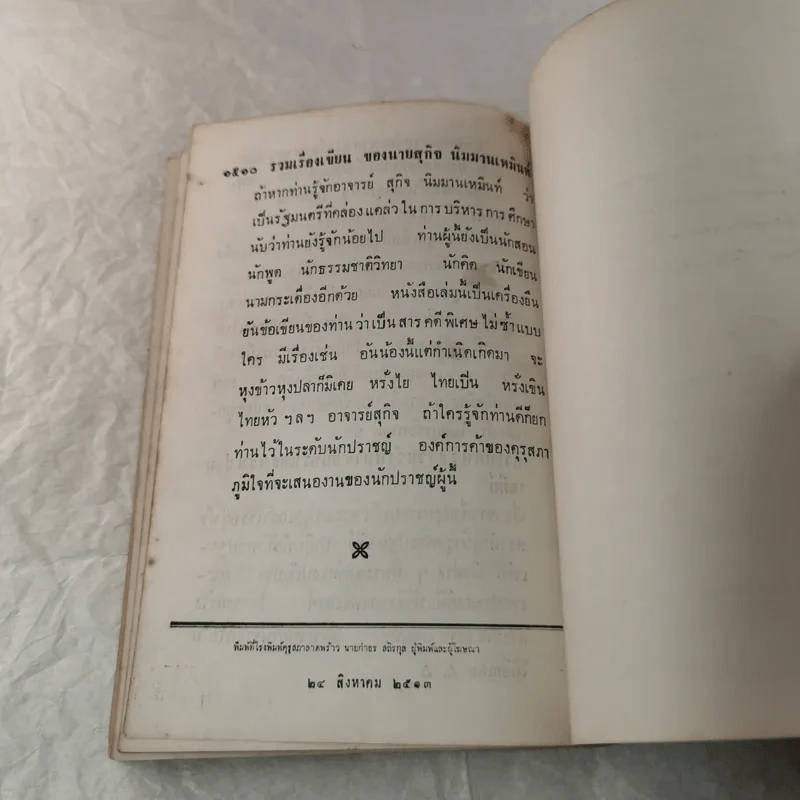 ๑๕๑๐ รวมเรื่องเขียน ของนายสุกิจ นิมมานเหมินท์
ถ้าหากท่านรู้จักอาจารย์ สุกิจ นิมมานเหมินท์ ว่า
เป็นรัฐมนตรีที่คล่องแคล่วในการบริหารการศึกษา
นับว่าท่านยังรู้จักน้อยไป ท่านผู้นี้ยังเป็นนักสอน
นักพูด นักธรรมชาติวิทยา นักคิด นักเขียน
นามกระเดื่องอีกด้วย หนังสือเล่มนี้เป็นเครื่องยืน
ยันข้อเขียนของท่านว่าเป็นสารคดีพิเศษไม่ซ้ำแบบ
ใคร มีเรื่องเช่น อันน้องนี้แต่กำเนิดเกิดมา จะ
หุงข้าวหุงปลาก็มิเคย หรั่งไย ไทยเป็น หรั่งเขิน
ไทยหัว ฯลฯ อาจารย์สุกิจ ถ้าใครรู้จักท่านดีก็ยก
ท่านไว้ในระดับนักปราชญ์ องค์การค้าของคุรุสภา
ภูมิใจที่จะเสนองานของนักปราชญ์ผู้นี้
พิมพ์ที่โรงพิมพ์คุรุสภาลาดพร้าว นายกำธร สถิรกุล ผู้พิมพ์และผู้โฆษณา
๒๔ สิงหาคม ๒๕๑๓